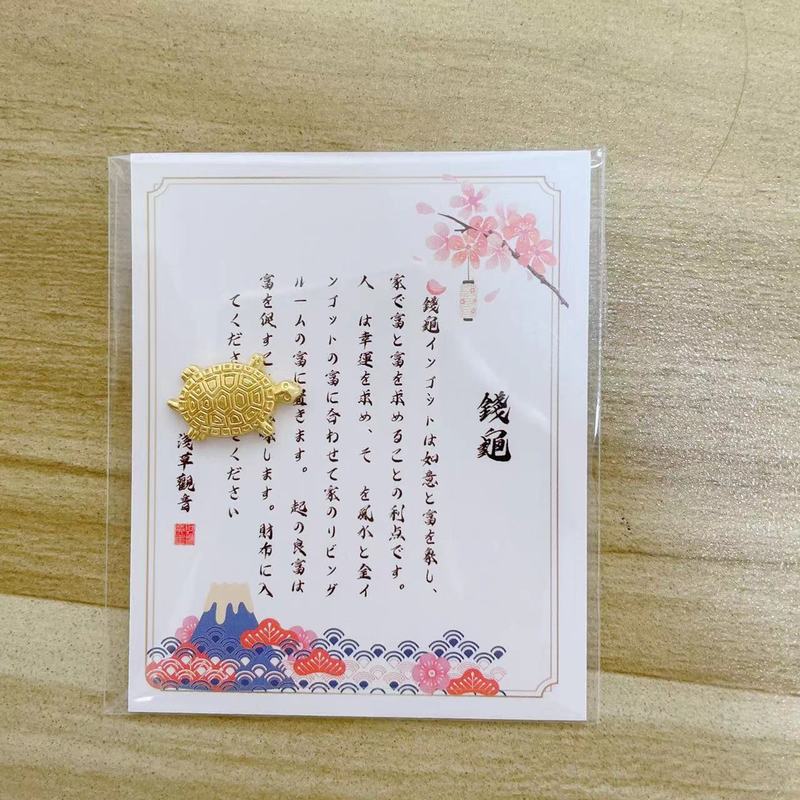 錢龜
錢龜インゴットは如意と富を象し、
家で富と富を求めることの利点です。
人 は幸運を求め、そ を風水と金イ
ンゴットの富に合わせて家のリビング
ルームの富に置きます。 起の良富は
富を促すこ します。財布に入
てくださ てください
浅草觀音